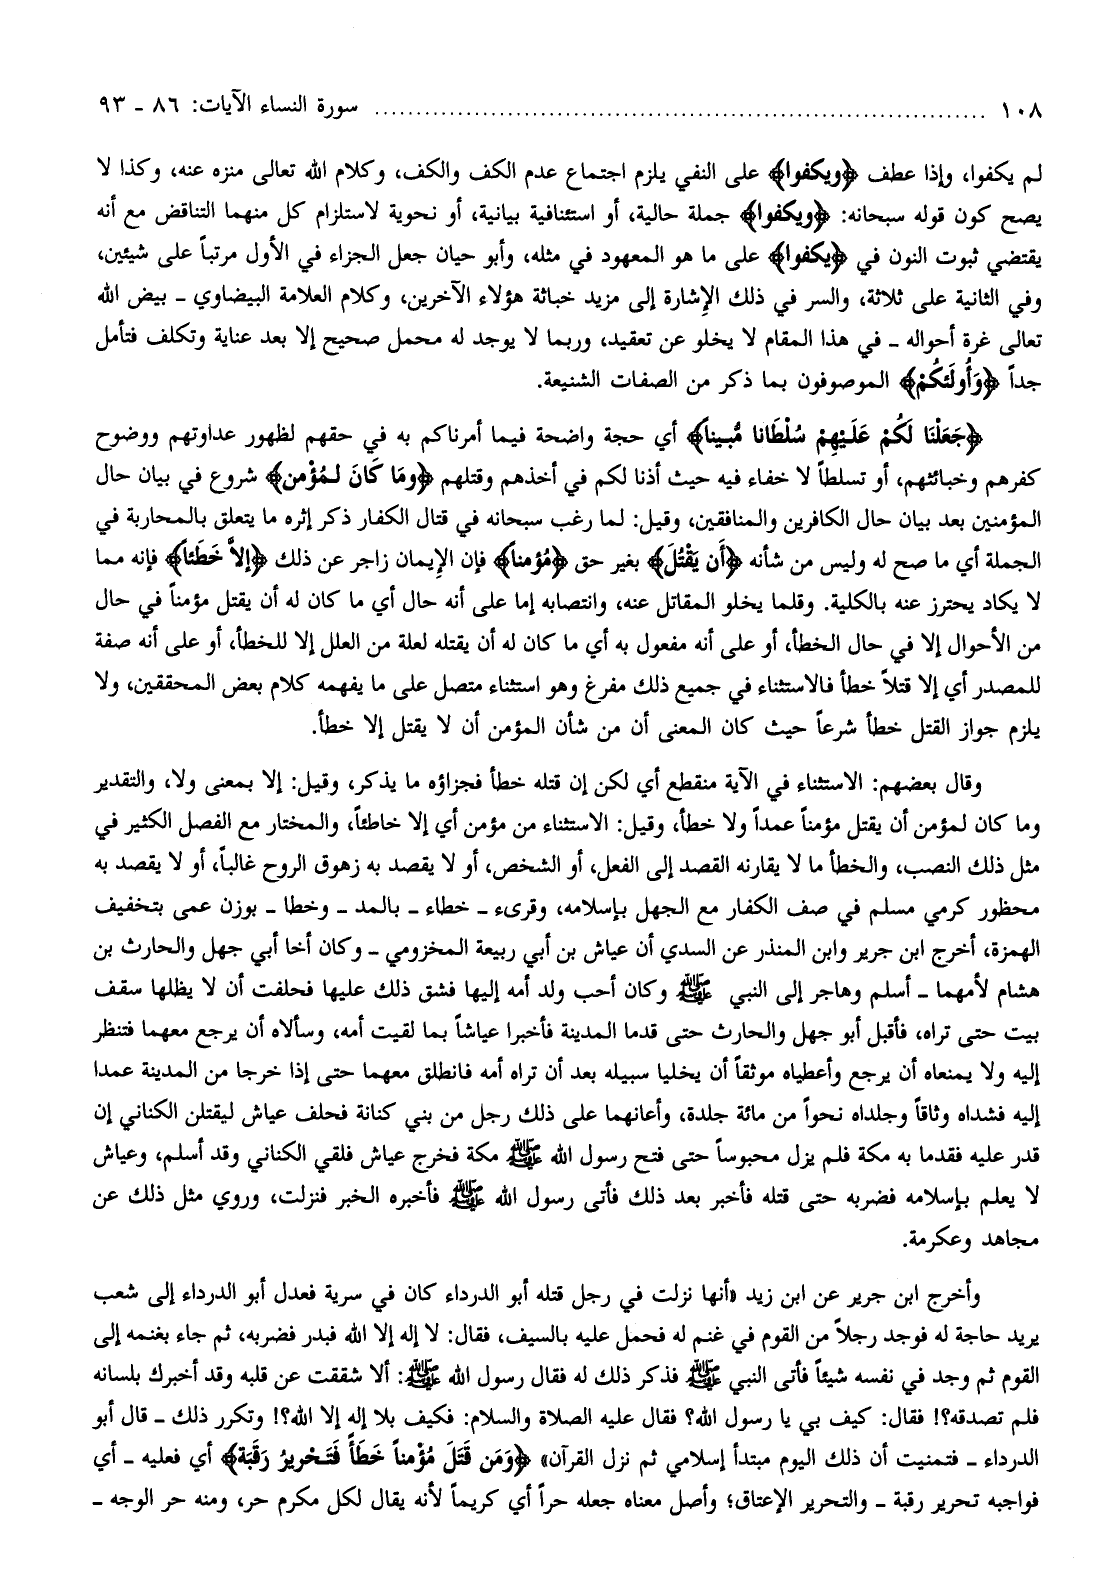 ١٠٨ ........................................................................ سورة النساء الآيات: ٨٦ ـ ٩٣
لم يكفوا، وإذا عطف ﴿ويكفوا﴾ على النفي يلزم اجتماع عدم الكف والكف، وكلام الله تعالى منزه عنه، وكذا لا
يصح كون قوله سبحانه: ﴿ويكفوا﴾ جملة حالية، أو استئنافية بيانية، أو نحوية لاستلزام كل منهما التناقض مع أنه
يقتضي ثبوت النون في ﴿يكفوا﴾ على ما هو المعهود في مثله، وأبو حيان جعل الجزاء في الأول مرتباً على شيئين،
وفي الثانية على ثلاثة، والسر في ذلك الإِشارة إلى مزيد خباثة هؤلاء الآخرين، وكلام العلامة البيضاوي ـ بيض الله
تعالى غرة أحواله ـ في هذا المقام لا يخلو عن تعقيد، وربما لا يوجد له محمل صحيح إلا بعد عناية وتكلف فتأمل
جداً ﴿وَأُولَئكُمْ﴾ الموصوفون بما ذكر من الصفات الشنيعة.
﴿جَعَلْنَا لَكُمْ عَلَيْهِمْ سُلْطَانا مُّبيناً﴾ أي حجة واضحة فيما أمرناكم به في حقهم لظهور عداوتهم ووضوح
كفرهم وخبائثهم، أو تسلطاً لا خفاء فيه حيث أذنا لكم في أخذهم وقتلهم ﴿ومَا كَانَ لمُؤْمن﴾ شروع في بيان حال
المؤمنين بعد بيان حال الكافرين والمنافقين، وقيل: لما رغب سبحانه في قتال الكفار ذكر إثره ما يتعلق بالمحاربة في
الجملة أي ما صح له وليس من شأنه ﴿أَن يَقْتُلَ﴾ بغير حق ﴿مُؤْمناً﴾ فإن الإِيمان زاجر عن ذلك ﴿إلاَّ خَطَئاً﴾ فإنه مما
لا يكاد يحترز عنه بالكلية. وقلما يخلو المقاتل عنه، وانتصابه إما على أنه حال أي ما كان له أن يقتل مؤمناً في حال
من الأحوال إلا في حال الخطأ، أو على أنه مفعول به أي ما كان له أن يقتله لعلة من العلل إلا للخطأ، أو على أنه صفة
للمصدر أي إلا قتلاً خطأ فالاستثناء في جميع ذلك مفرغ وهو استثناء متصل على ما يفهمه كلام بعض المحققين، ولا
يلزم جواز القتل خطأ شرعاً حيث كان المعنى أن من شأن المؤمن أن لا يقتل إلا خطأ.
وقال بعضهم: الاستثناء في الآية منقطع أي لكن إن قتله خطأ فجزاؤه ما يذكر، وقيل: إلا بمعنى ولا، والتقدير
وما كان لمؤمن أن يقتل مؤمناً عمداً ولا خطأ، وقيل: الاستثناء من مؤمن أي إلا خاطئاً، والمختار مع الفصل الكثير في
مثل ذلك النصب، والخطأ ما لا يقارنه القصد إلى الفعل، أو الشخص، أو لا يقصد به زهوق الروح غالباً، أو لا يقصد به
محظور كرمي مسلم في صف الكفار مع الجهل بإسلامه، وقرىء ـ خطاء ـ بالمد ـ وخطا ـ بوزن عمى بتخفيف
الهمزة، أخرج ابن جرير وابن المنذر عن السدي أن عياش بن أبي ربيعة المخزومي ـ وكان أخا أبي جهل والحارث بن
هشام لأمهما ـ أسلم وهاجر إلى النبي ﷺ وكان أحب ولد أمه إليها فشق ذلك عليها فحلفت أن لا يظلها سقف
بيت حتى تراه، فأقبل أبو جهل والحارث حتى قدما المدينة فأخبرا عياشاً بما لقيت أمه، وسألاه أن يرجع معهما فتنظر
إليه ولا يمنعاه أن يرجع وأعطياه موثقاً أن يخليا سبيله بعد أن تراه أمه فانطلق معهما حتى إذا خرجا من المدينة عمدا
إليه فشداه وثاقاً وجلداه نحواً من مائة جلدة، وأعانهما على ذلك رجل من بني كنانة فحلف عياش ليقتلن الكناني إن
قدر عليه فقدما به مكة فلم يزل محبوساً حتى فتح رسول الله ﷺ مكة فخرج عياش فلقي الكناني وقد أسلم، وعياش
لا يعلم بإسلامه فضربه حتى قتله فأخبر بعد ذلك فأتى رسول الله ﷺ فأخبره الخبر فنزلت، وروي مثل ذلك عن
مجاهد وعكرمة.
وأخرج ابن جرير عن ابن زيد «أنها نزلت في رجل قتله أبو الدرداء كان في سرية فعدل أبو الدرداء إلى شعب
يريد حاجة له فوجد رجلاً من القوم في غنم له فحمل عليه بالسيف، فقال: لا إله إلا الله فبدر فضربه، ثم جاء بغنمه إلى
القوم ثم وجد في نفسه شيئاً فأتى النبي ﷺ فذكر ذلك له فقال رسول الله ﷺ: ألا شققت عن قلبه وقد أخبرك بلسانه
فلم تصدقه؟! فقال: كيف بي يا رسول الله؟ فقال عليه الصلاة والسلام: فكيف بلا إله إلا الله؟! وتكرر ذلك ـ قال أبو
الدرداء ـ فتمنيت أن ذلك اليوم مبتدأ إسلامي ثم نزل القرآن» ﴿وَمَن قَتَلَ مُؤْمناً خَطَأً فَتَحْريرُ رَقَبَة﴾ أي فعليه ـ أي
فواجبه تحرير رقبة ـ والتحرير الإعتاق؛ وأصل معناه جعله حراً أي كريماً لأنه يقال لكل مكرم حر، ومنه حر الوجه ـ